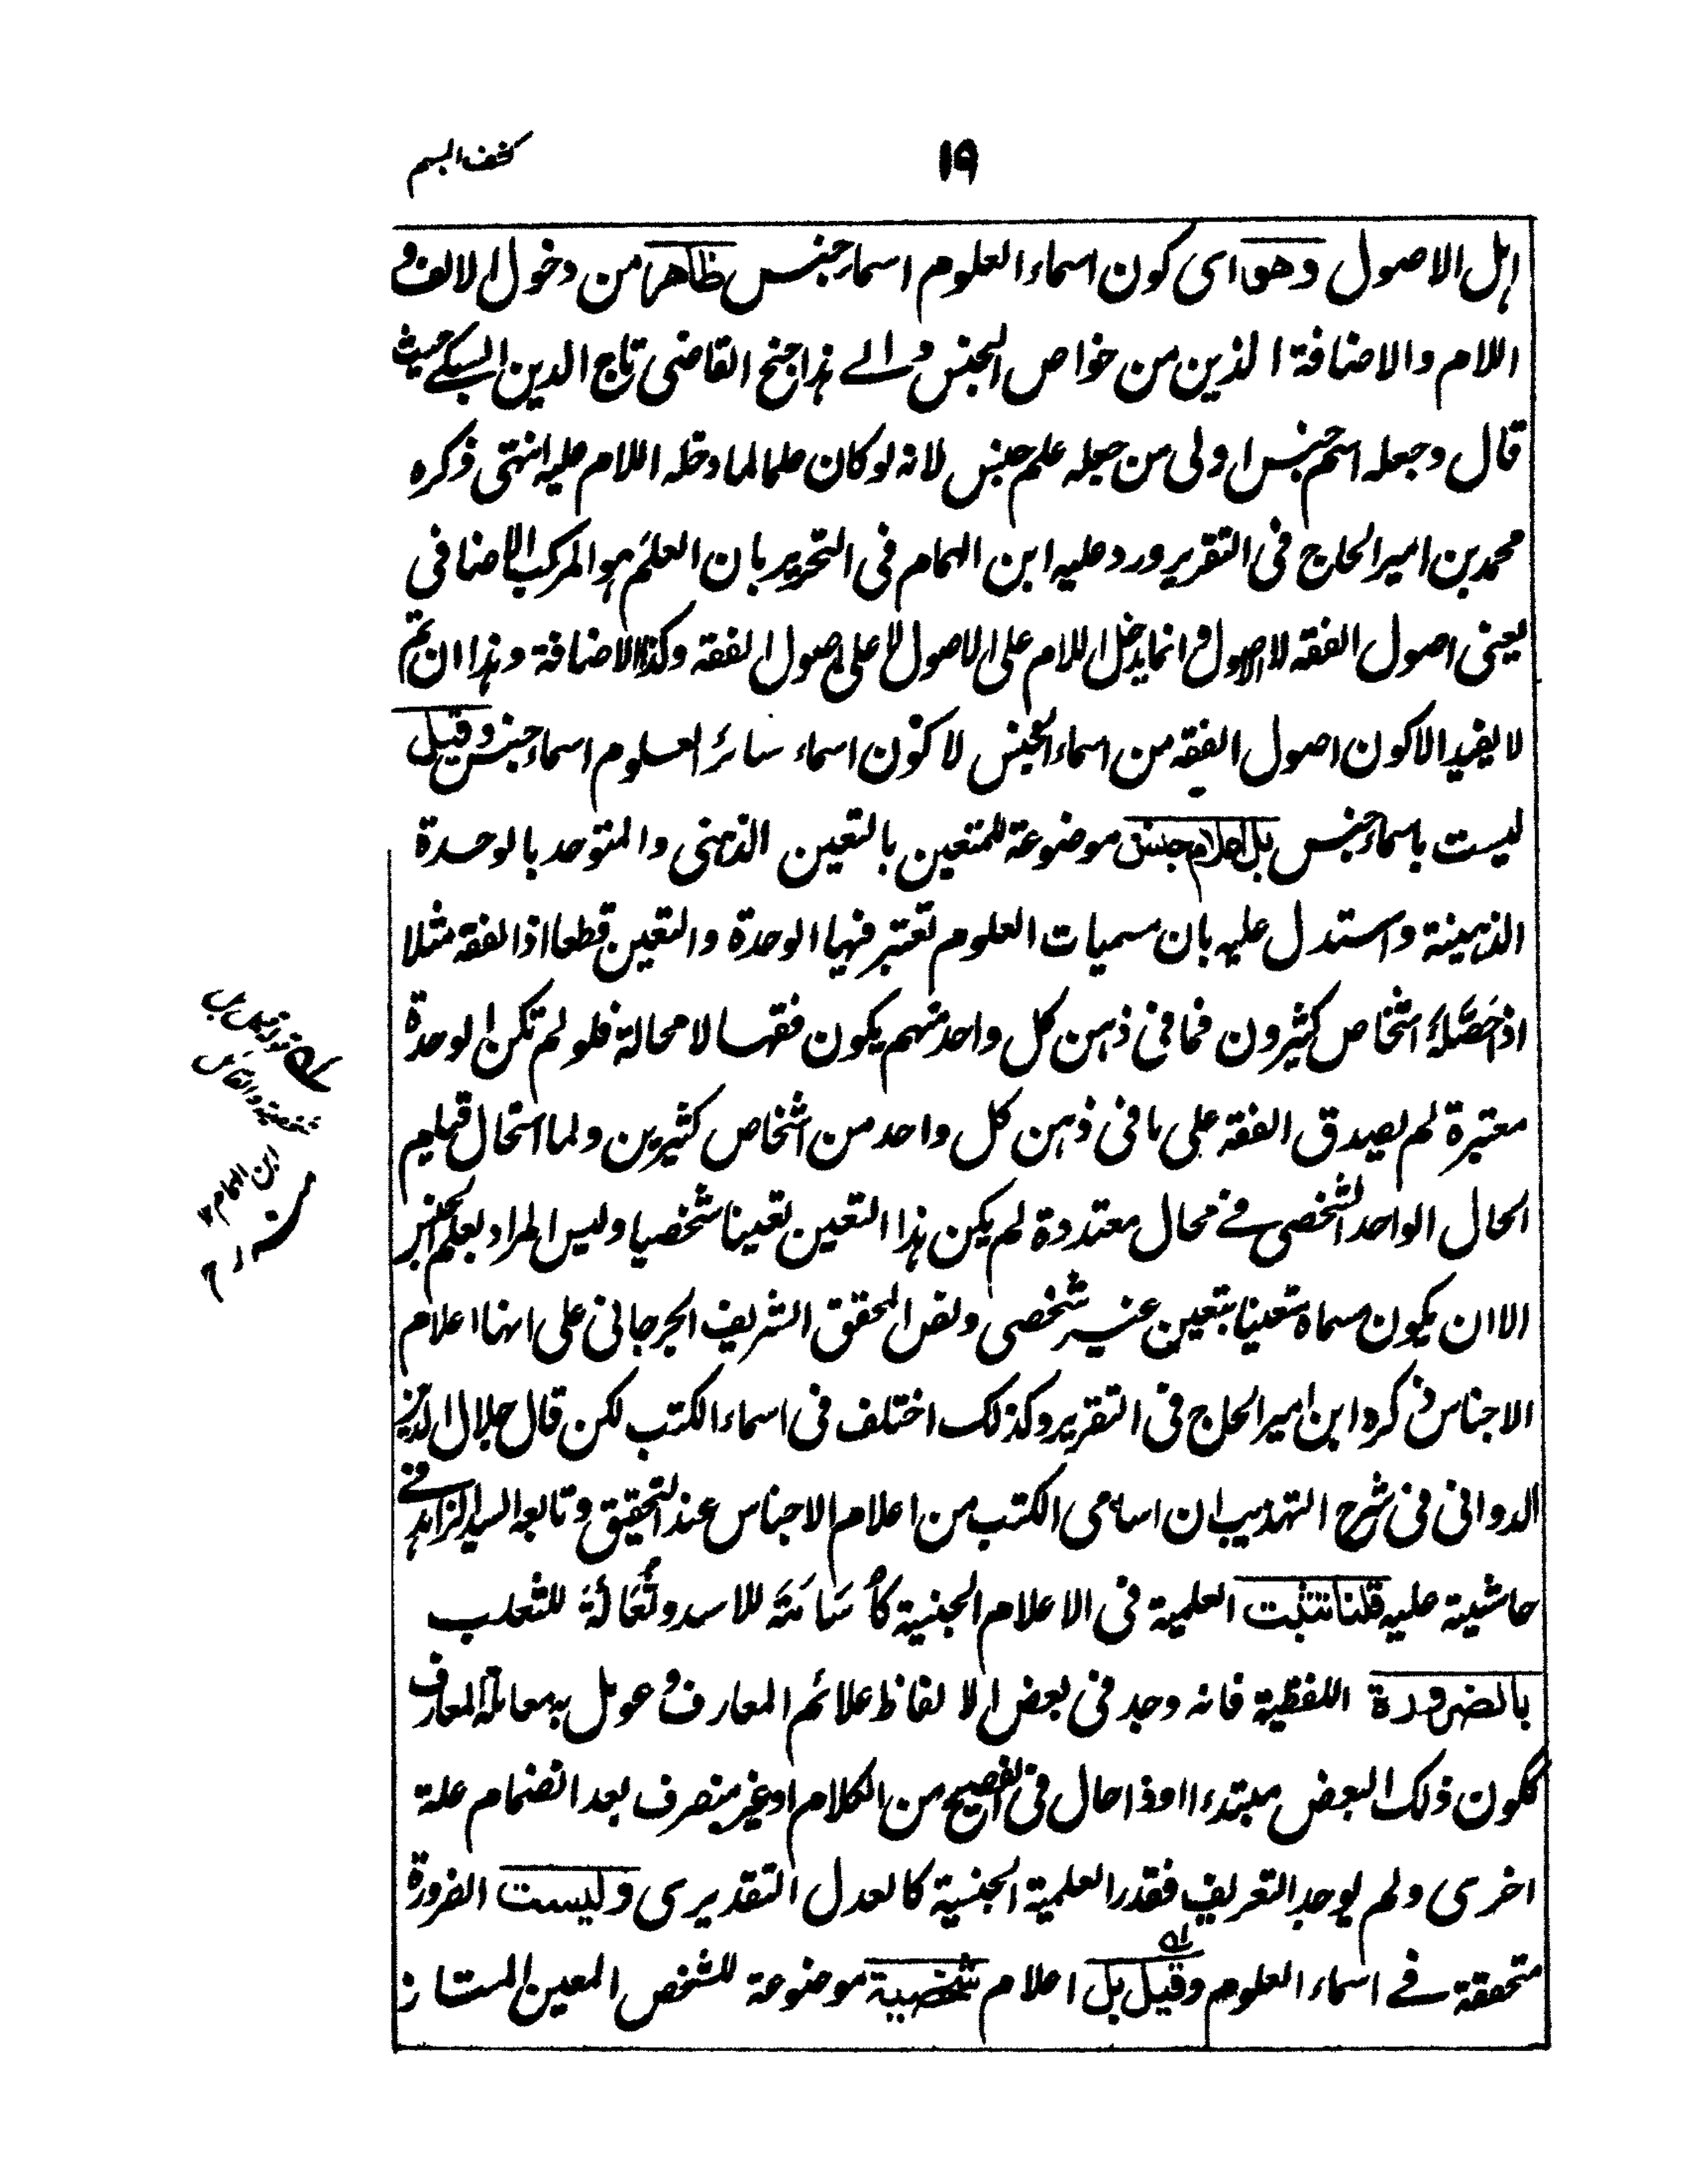 ١٩
كشف المبهم
اہل الاصول وھو ای كون اسماء العلوم اسماء جنس ظاھر من دخول الالف و
اللام والاضافة الذين من خواص الجنس و الے ہذا جنح القاضی تاج الدين السبكے حيث
قال وجعله اسم جنس اولی من جعله علم جنس لانه لو كان علما لما دخله اللام عليه انتهی ذكره
محمد بن امير الحاج فی التقرير ورد عليه ابن الهمام فی التحرير بان العلم ہو المركب الاضافی
يعنی اصول الفقه لا الاصول و انما يدخل اللام علی الاصول لا علی اصول الفقه وكذا الاضافة وہذا ان تم
لا يفيد الا كون اصول الفقه من اسماء الجنس لا كون اسماء سائر العلوم اسماء جنس وقيل
ليست باسماء جنس بل اعلام جنس موضوعة للمتعين بالتعين الذہنی والمتوحد بالوحدة
الذہنية واستدل عليه بان مسميات العلوم تعتبر فيها الوحدة والتعين قطعا اذ الفقه مثلا
اذ حَصَّلَهُ اشخاص كثيرون فما فی ذہن كل واحد منهم يكون فقها لا محالة فلو لم تكن الوحدة
معتبرة لم يصدق الفقه علی ما فی ذہن كل واحد من اشخاص كثيرين ولما استحال قيام
الحال الواحد الشخصی فے محال متعددة لم يكن ہذا التعين تعينا شخصيا وليس المراد بعلم الجنس
الا ان يكون مسماه متعينا بتعين غير شخصی ونص المحقق الشريف الجرجانی علی انها اعلام
الاجناس ذكره ابن امير الحاج فی التقرير وكذلك اختلف فی اسماء الكتب لكن قال جلال الدين
الدوانی فی شرح التهذيب ان اسامی الكتب من اعلام الاجناس عند التحقيق وتابعه السيد الزاہد فے
حاشية عليه قلنا تثبت العلمية فی الاعلام الجنسية كأُسَامَةَ للاسد وثُعَالَةَ للثعلب
بالضرورة اللفظية فانه وجد فی بعض الالفاظ علائم المعارف و عومل به معاملة المعارف
ككون ذلك البعض مبتدءا او ذا حال فی الفصيح من الكلام او غير منصرف بعد انضمام علة
اخری ولم يوجد التعريف فقدر العلمية الجنسية كالعدل التقديری وليست الضرورة
متحققة فے اسماء العلوم وقيل بل اعلام شخصية موضوعة للشخص المعين الممتاز
له قوله وقيل بل
شخصية والقائل
ابن الهمام ١٢
منه رح